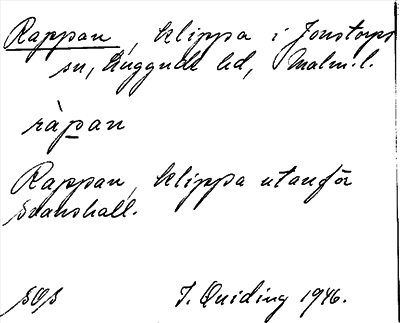 Rappan, klippa i Jonstorps
sn, Luggude hd, Malm.l.
ràpan
Rappan, klippa utanför
Svanshall.
sOs J. Quiding 1946.